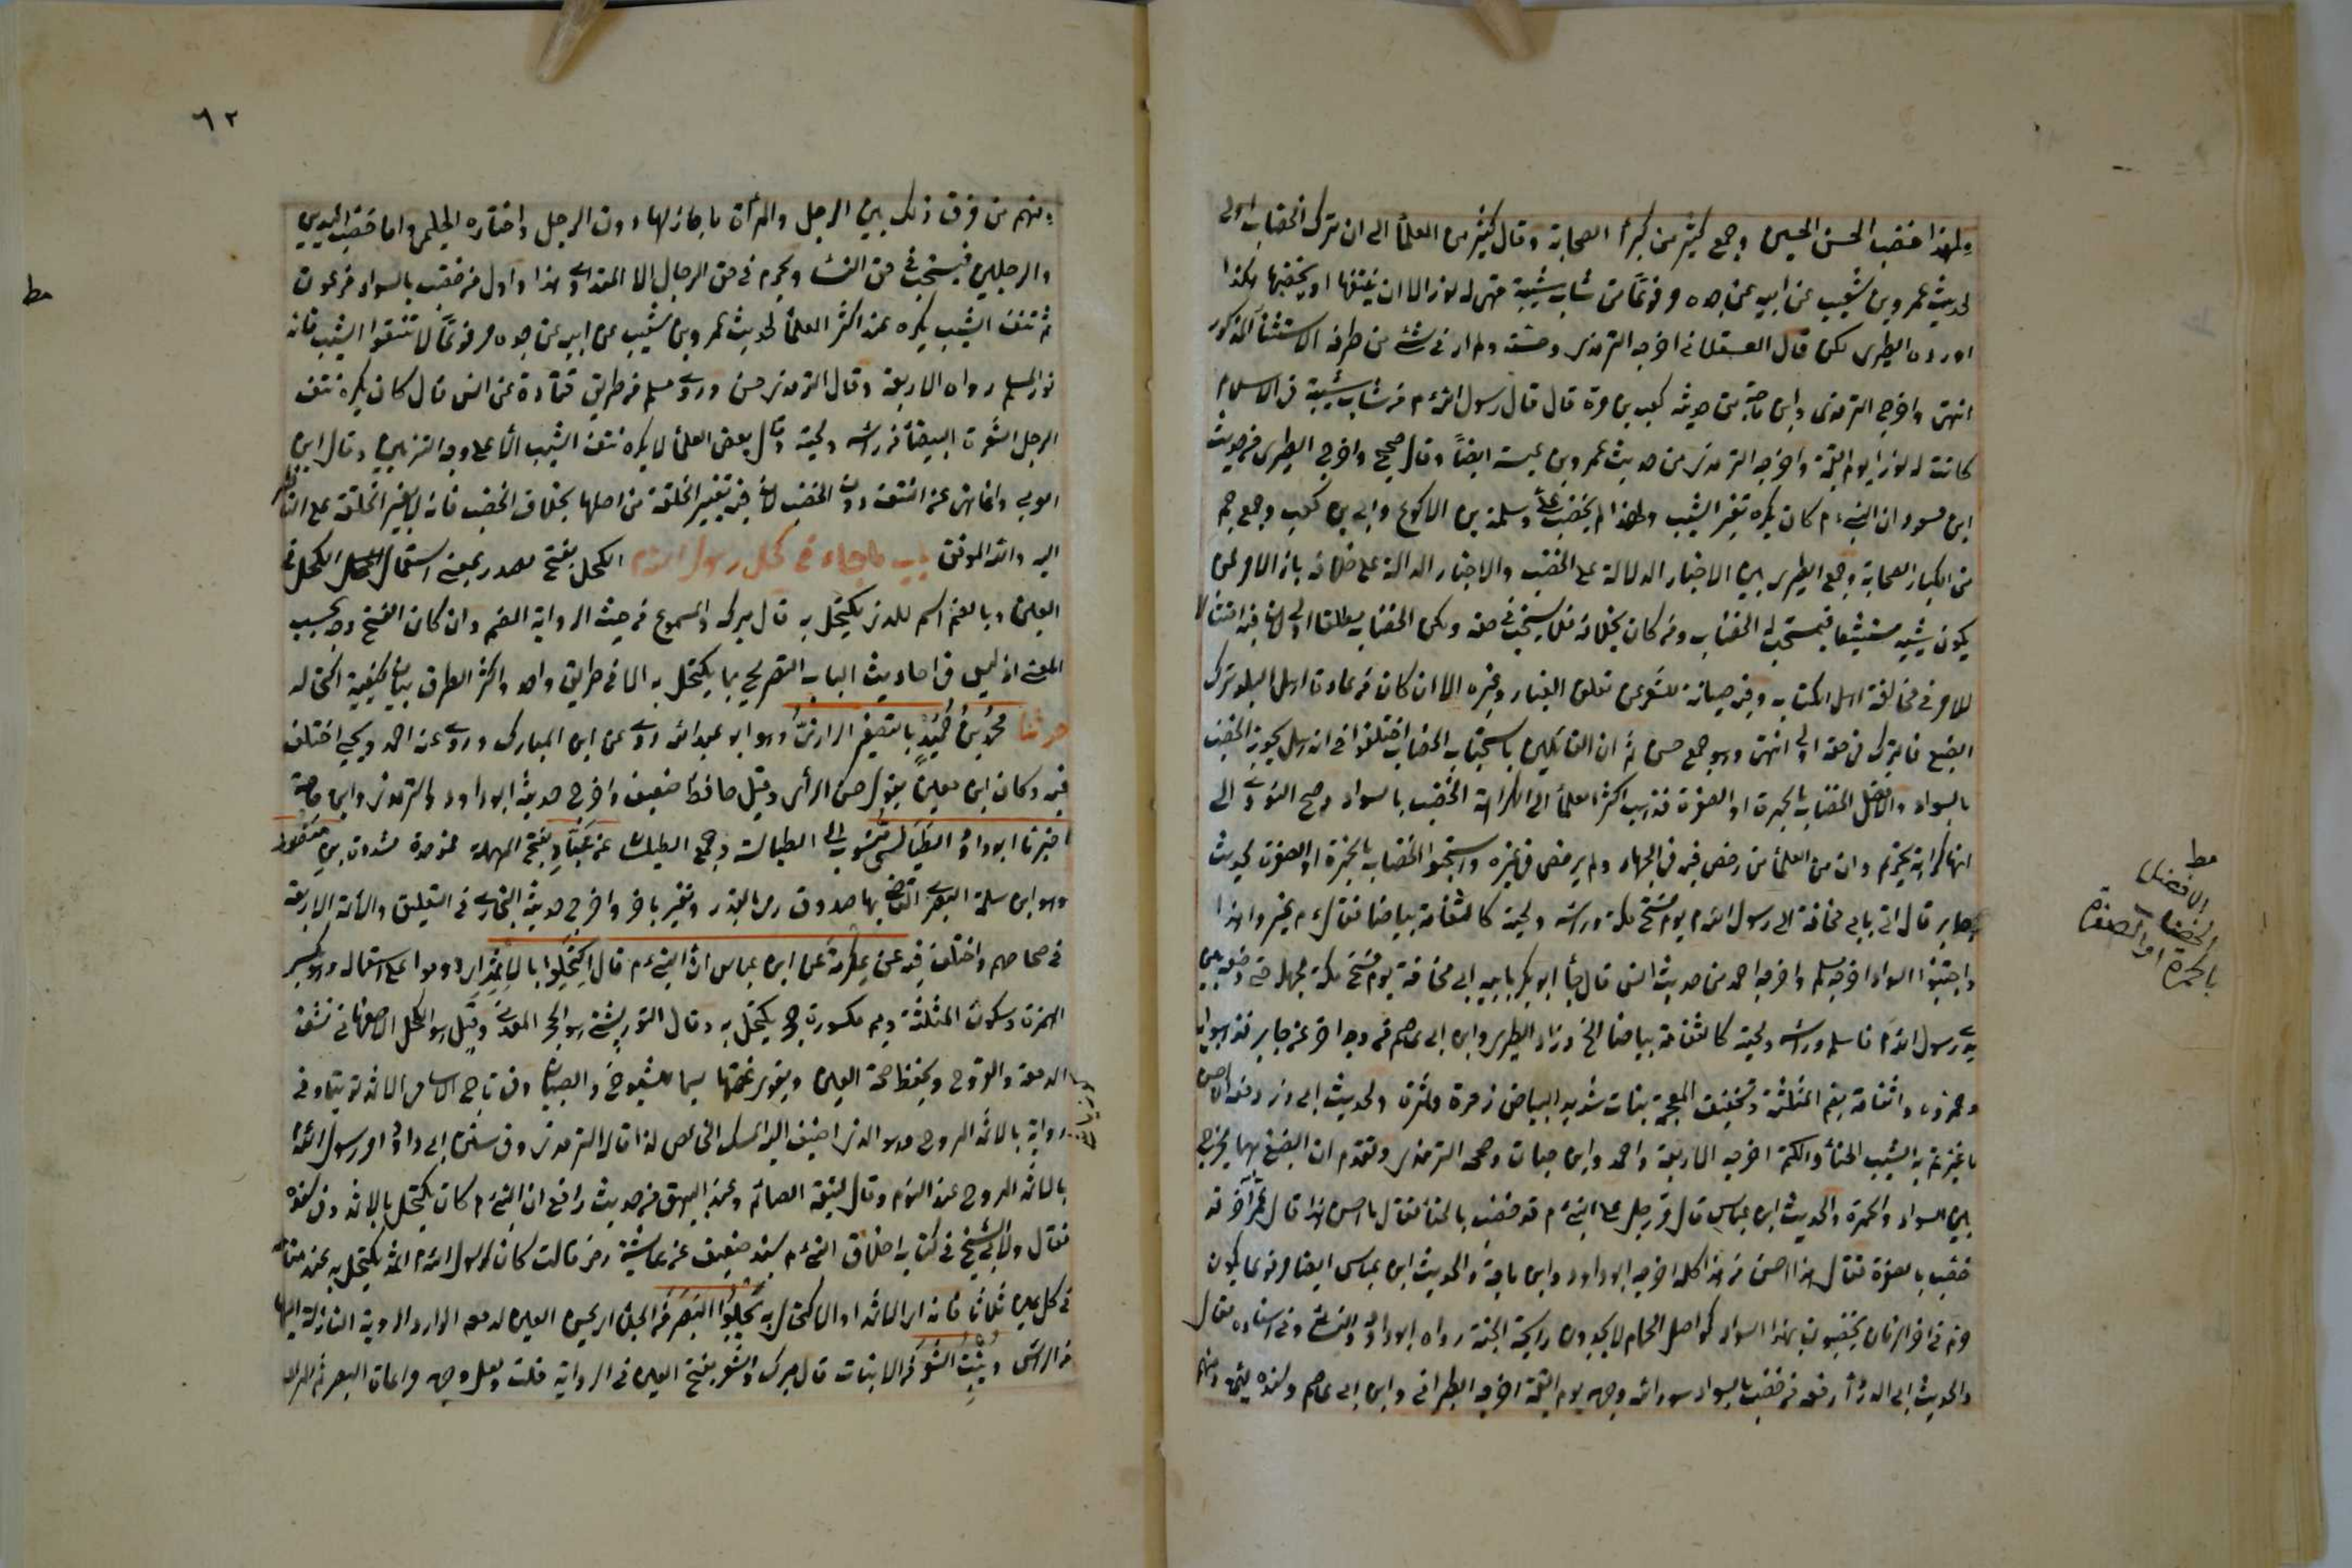 ولهذا خضب الحسن والحسين وجمع كثير من كبرأ الصحابة وقال كثير من العلمأ الى ان ترك الخضاب اولى
لحديث عمرو بن شعيب عن ابيه عن جده مرفوعًا من شاب شيبة فهى له نور الا ان ينتفها او يخضبها هكذا
اورده الطبرى لكن قال العسقلانى اخرجه الترمذى وحسنه ولم ار فى شئ من طرقه الاستثنأ المذكور
انتهى واخرج الترمذى وابن ماجة من حديث كعب بن مرة قال قال رسول الله م من شاب شيبة فى الاسلام
كانت له نورا يوم القيمة واخرجه الترمذى من حديث عمرو بن عبسة ايضًا وقال صحيح واخرج الطبرى من حديث
ابن مسعود ان النبى م كان يكره تغيير الشيب ولهذا لم يخضب على وسلمة بن الاكوع وابى بن كعب وجمع جم
من كبار الصحابة وجمع الطبرى بين الاخبار الدالة على الخضب والاخبار الدالة على خلافه بان الامر لمن
يكون شيبه مستبشعا فيستحب له الخضاب ومن كان بخلافه فلا يستحب فى حقه ولكن الخضاب مطلقا اولى لان فيه امتثالا
للامر فى مخالفة اهل الكتاب وفيه صيانة للشعر عن تعلق الغبار وغيره الا ان كان من عادة اهل البلد ترك
الصبغ فالترك فى حقه اولى انتهى وهو جمع حسن ثم ان القائلين باستحباب الخضاب اختلفوا فى انه هل يجوز الخضب
بالسواد والافضل الخضاب بالحمرة او الصفرة فذهب اكثر العلمأ الى كراهة الخضب بالسواد وجنح النووى الى
انها كراهة تحريم وان من العلمأ من رخص فيه فى الجهاد ولم يرخص فى غيره واستحبوا الخضاب بالحمرة او الصفرة لحديث
جابر قال اتى بابى قحافة الى رسول الله م يوم فتح مكة وراسه ولحيته كالثغامة بياضا فقال م غيروا هذا
واجتنبوا السواد اخرجه مسلم واخرجه احمد من حديث انس قال جأ ابو بكر بابيه ابى قحافة يوم فتح مكة يحمله حتى وضعه بين
يدى رسول الله م فاسلم وراسه ولحيته كالثغامة بياضا الخ وزاد الطبرى وابن ابى عاصم من وجه اخر عن جابر فذهبوا به
وحمروه والثغامة بضم المثلثة وتخفيف المعجمة نبات شديد البياض زهره وثمره ولحديث ابى ذر رفعه ان احسن
ما غيرتم به الشيب الحنأ والكتم اخرجه الاربعة واحمد وابن حبان وصححه الترمذى وتقدم ان الصبغ بهما يخرج
بين السواد والحمرة ولحديث ابن عباس قال مر رجل على النبى م قد خضب بالحنأ فقال ما احسن هذا قال فمر آخر قد
خضب بالصفرة فقال هذا احسن من هذا كله اخرجه ابو داود وابن ماجة ولحديث ابن عباس ايضا مرفوعا يكون
قوم فى اخر الزمان يخضبون بهذا السواد كحواصل الحمام لا يجدون رايحة الجنة رواه ابو داود والنسائى وفى اسناده مقال
ولحديث ابى الدردأ رفعه من خضب بالسواد سود الله وجهه يوم القيمة اخرجه الطبرانى وابن ابى عاصم وسنده لين ومنهم
مط
الافضل
الخضاب
بالحمرة او الصفرة
٦٢
ومنهم من فرق ذلك بين الرجل والمرأة فاجازلها دون الرجل واختاره الحليمى واما خضب اليدين
والرجلين فيستحب فى حق النسأ ويحرم فى حق الرجال الا للتداوى هذا واول من خضب بالسواد فرعون
مط
ثم نتف الشيب يكره عند اكثر العلمأ لحديث عمرو بن شعيب عن ابيه عن جده مرفوعًا لا تنتفوا الشيب فانه
نور المسلم رواه الاربعة وقال الترمذى حسن وروى مسلم من طريق قتادة عن انس قال كان يكره نتف
الرجل الشعرة البيضأ من راسه ولحيته وقال بعض العلمأ لا يكره نتف الشيب الا على وجه التزيين وقال ابن
العربى وانما نهى عن النتف دون الخضب لان فيه تغيير الخلقة من اصلها بخلاف الخضب فانه لا يغير الخلقة على الناظر
اليه والله الموفق باب ما جاء فى كحل رسول الله م الكحل بفتح مصدر بمعنى استعمال الكحل فى
العين وبالضم اسم للذى يكتحل به قال ميرك والمسموع من حيث الرواية الضم وان كان الفتح وجه بحسب
المعنى اذ ليس فى احاديث الباب التصريح بما يكتحل به الا فى طريق واحد واكثر الطرق بيان كيفية اكتحاله
حدثنا محمد بن حميد بالتصغير الرازى وهو ابو عبد الله روى عن ابن المبارك وروى عنه احمد ويحيى اختلف
فيه وكان ابن معين يقول حسن الرأى وقيل حافظ ضعيف واخرج حديثه ابو داود والترمذى وابن ماجة
اخبرنا ابو داود الطيالسى منسوب الى الطيالسة وجمع الطيلسان عن عباد بفتح المهملة فموحدة مشددة بن منصور
وهو ابن سلمة البصرى القاضى بها صدوق رمى بالقدر وتغير باخره واخرج حديثه البخارى فى التعليق والائمة الاربعة
فى صحاحهم واختلف فيه عن عكرمة عن ابن عباس ان النبى م قال اكتحلوا بالاثمد اى دوموا على استعماله وهو بكسر
الهمزة وسكون المثلثة وميم مكسورة حجر يكتحل به وقال التوربشتى هو الحجر المعدنى وقيل هو الكحل الاصفهانى ينشف
الدمعة والقروح ويحفظ صحة العين ويقوى غصنها لاسيما للشيوخ والصبيان وفى تاج الاسامى الاثمد توتيا وفى
رواية بالاثمد المروح وهو الذى اضيف اليه المسك الخالص لذا قاله الترمذى وفى سنن ابى داود امر رسول الله م
بالاثمد المروح عند النوم وقال ليتقه الصائم وعند البيهقى من حديث رافع ان النبى م كان يكتحل بالاثمد وفى سنده
مقال ولابى الشيخ فى كتاب اخلاق النبى م بسند ضعيف عن عايشة رض قالت كان لرسول الله م اثمد يكتحل به عند منامه
فى كل عين ثلاثا فانه اى الاثمد او الاكتحال به يجلوا البصر من الجلأ اى يحسن العين لدفعه المواد الردية النازلة اليها
من الراس وينبت الشعر من الانبات قال ميرك والشعر بفتح العين فى الرواية قلت ولعل وجهه مراعاة البصر ثم المراد